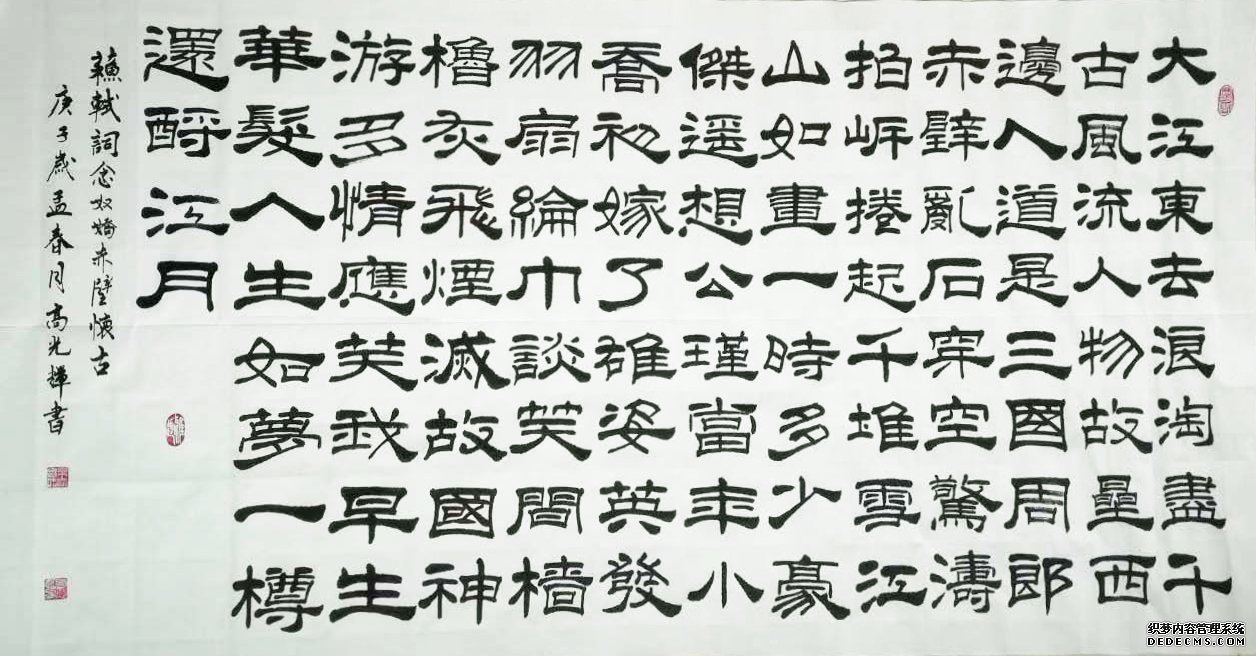 大江東去浪淘盡千
古風流人物故壘西
邊人道是三國周郎
赤壁亂石穿空驚濤
拍岸捲起千堆雪江
山如畫一時多少豪
傑遥想公瑾當年小
喬初嫁了雄姿英發
羽扇綸巾談笑間檣
櫓灰飛煙滅故國神
游多情應笑我早生
華髮人生如夢一樽
還酹江月
蘇軾詞念奴嬌赤壁懷古
庚子歲孟春月高光輝書
织梦内容管理系统
DEDECMS.COM